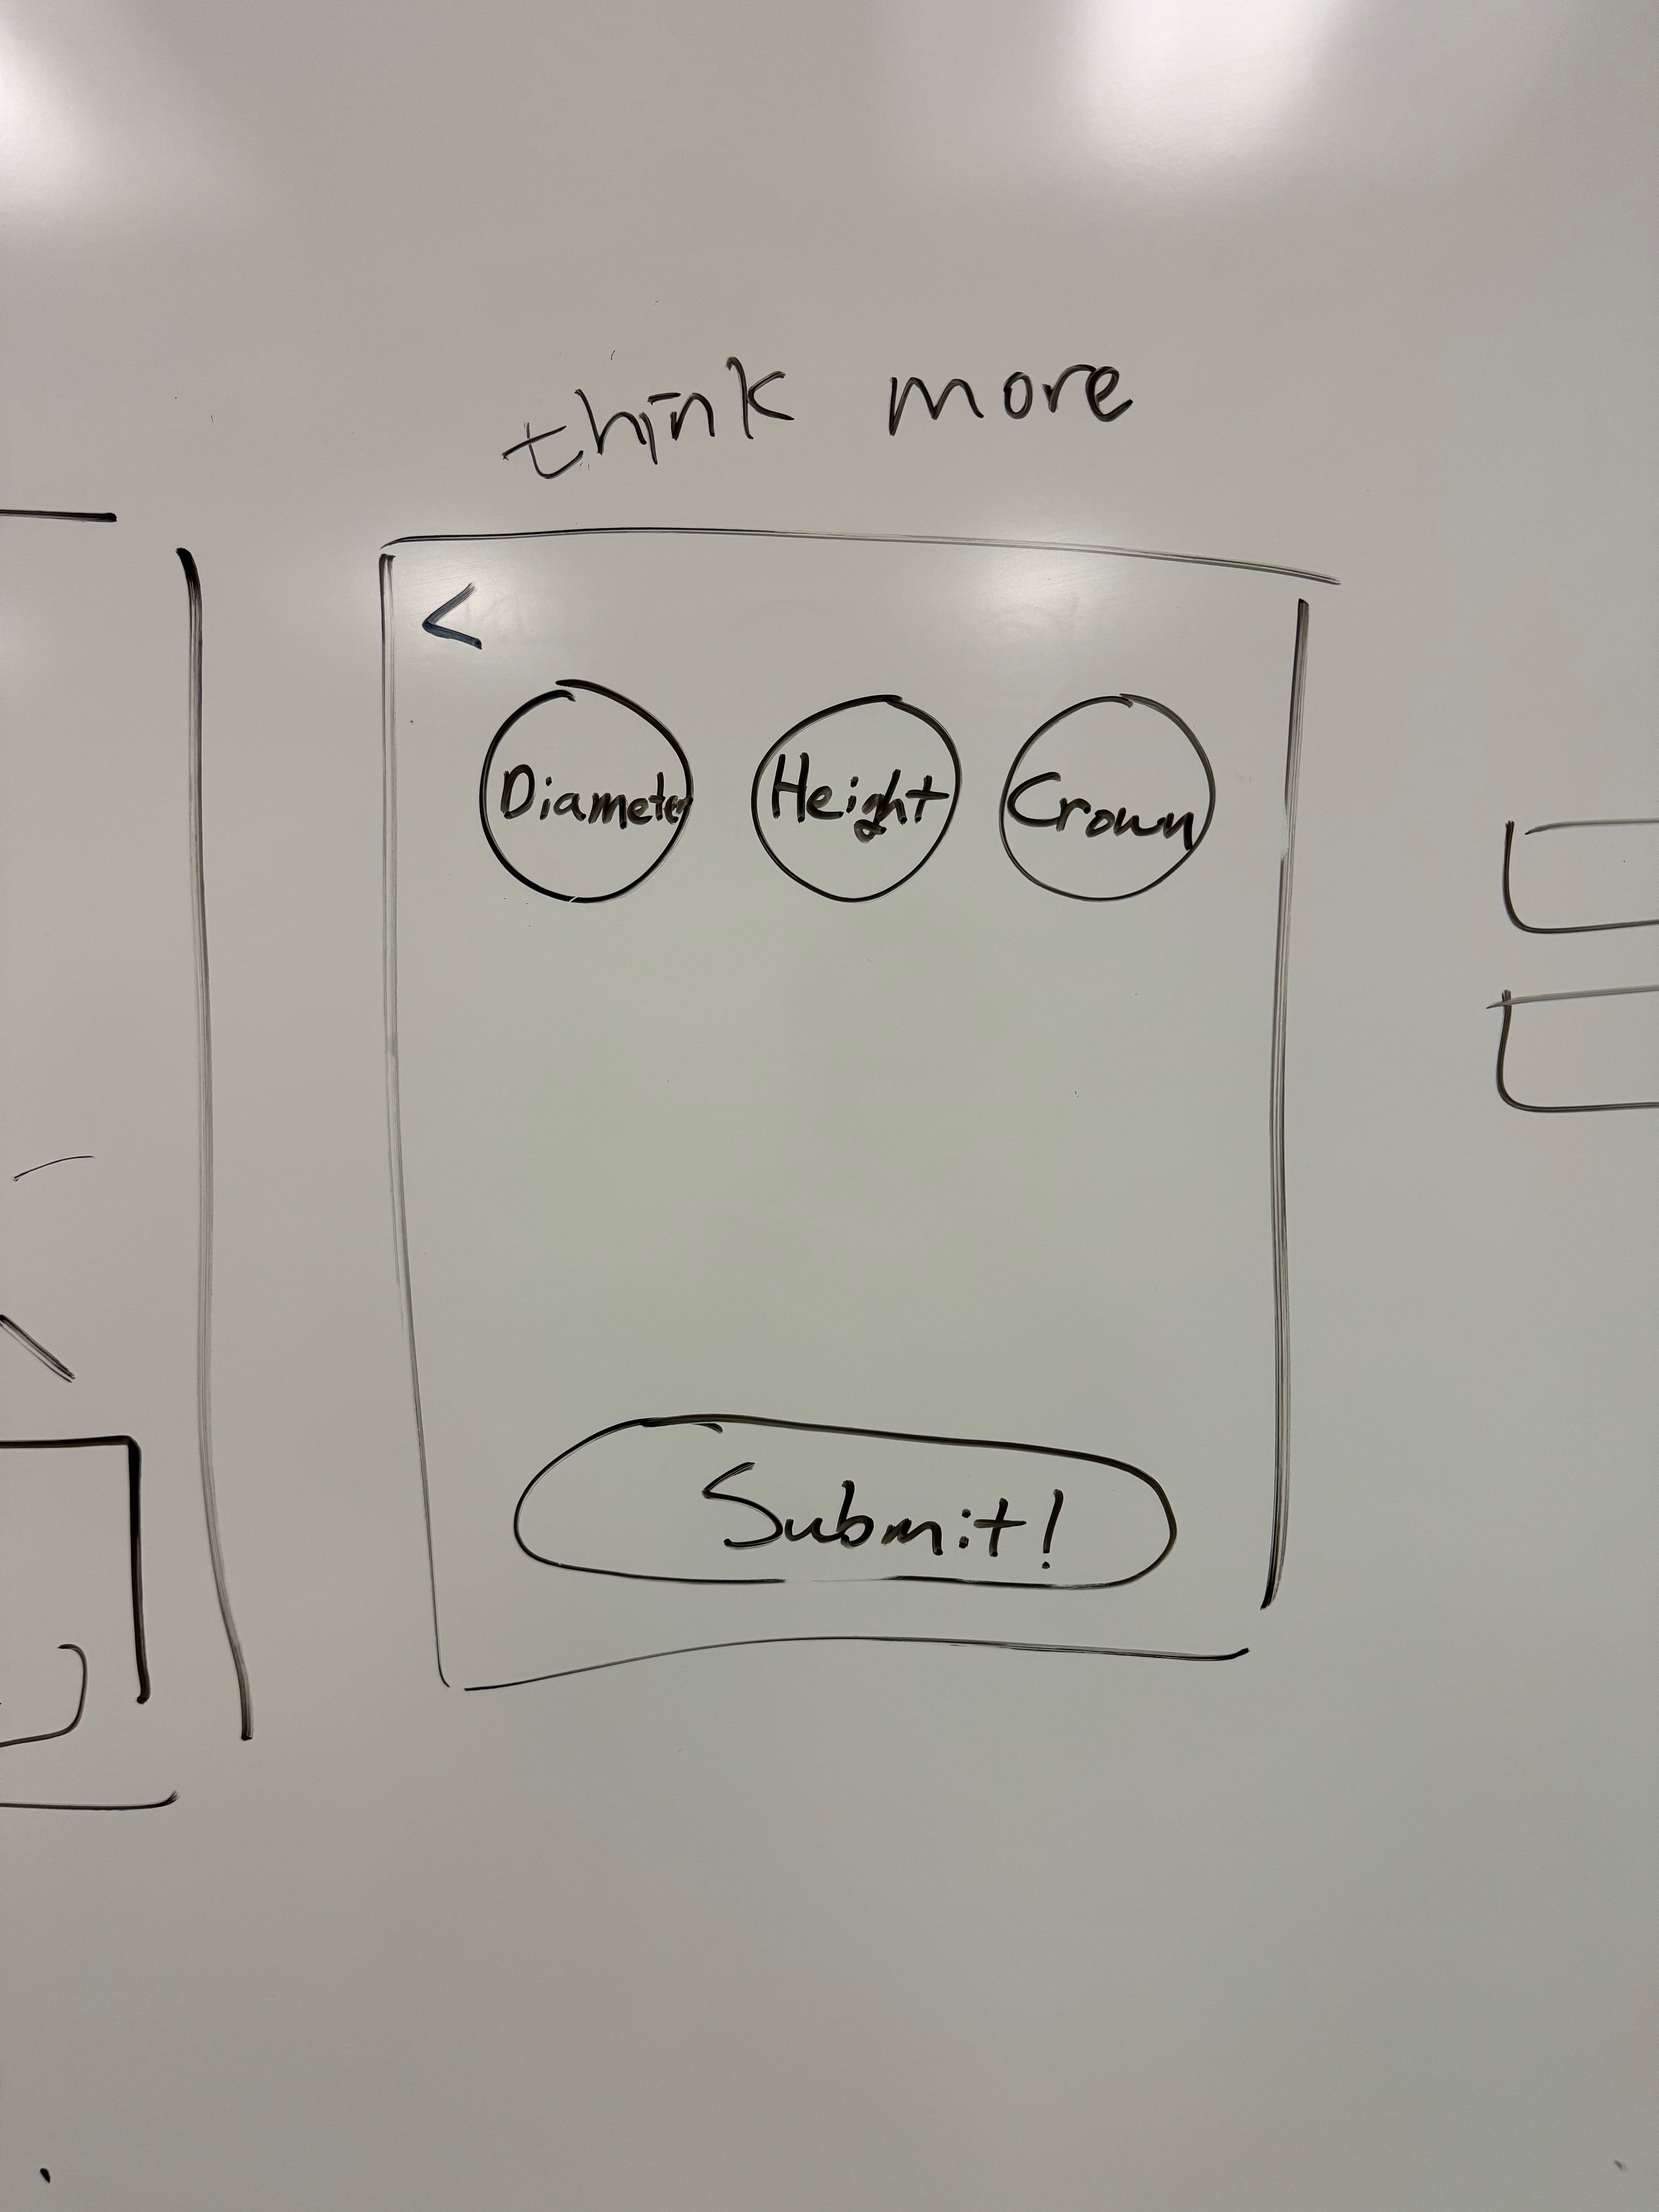 think more
<
Diameter Height Crown
Submit!